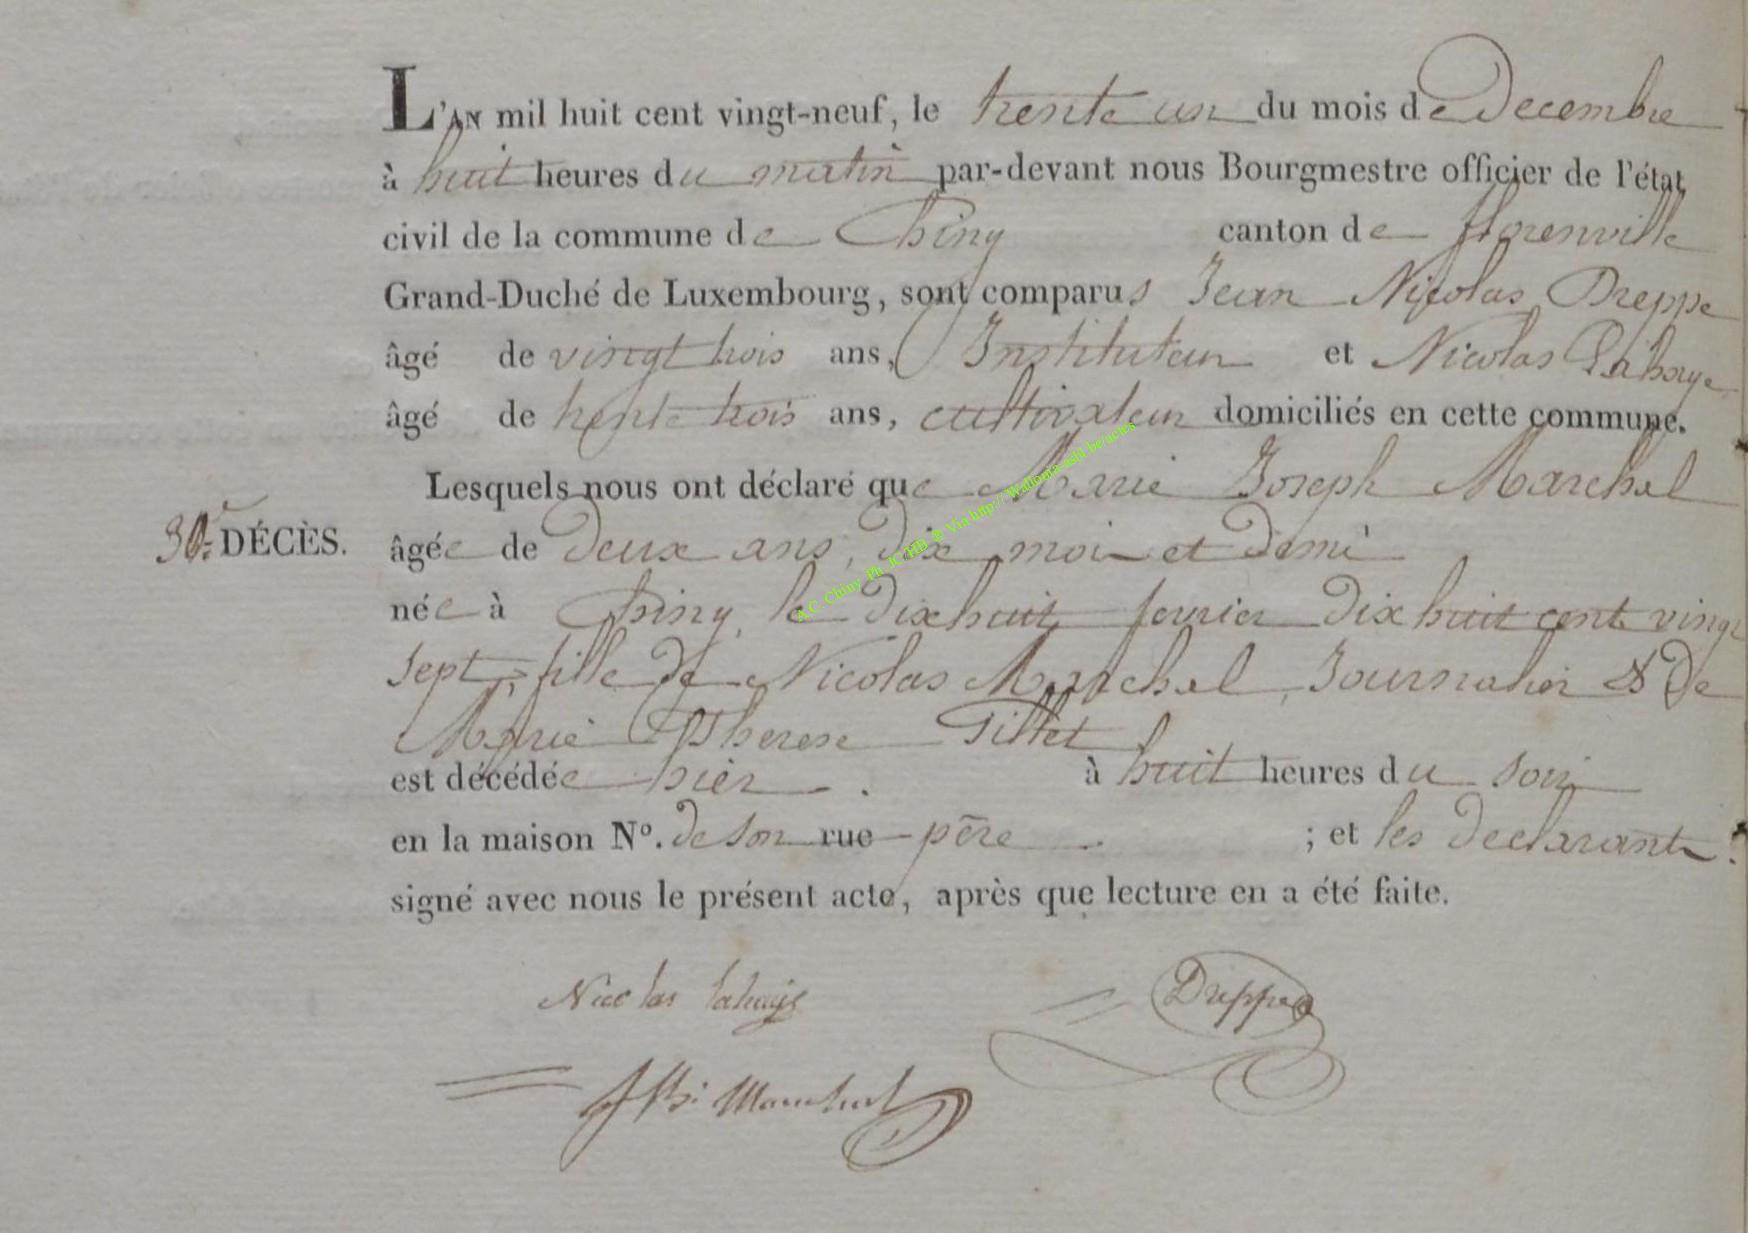 L'AN mil huit cent vingt-neuf, le trente un du mois de Decembre
à huit heures du matin par-devant nous Bourgmestre officier de l'état
civil de la commune de Chiny canton de florenville
Grand-Duché de Luxembourg, sont comparus Jean Nicolas Dreppe
âgé de vingt trois ans, Instituteur et Nicolas Lahaye
âgé de trente trois ans, cultivateur domiciliés en cette commune.
Lesquels nous ont déclaré que Marie Joseph Marchal
30e DÉCÈS. âgée de deux ans, dix mois et demi
née à Chiny, le dix huit fevrier dix huit cent vingt
sept, fille de Nicolas Marchal, Journalier & de
Marie Therese Gillet
est décédée hier. à huit heures du soir
en la maison N°. de son rue père ; et les declarants
signé avec nous le présent acte, après que lecture en a été faite.
Nicolas lahaye Dreppe
Marchal
A.C. Chiny Ph JC HB @ Via http:// Wallonica